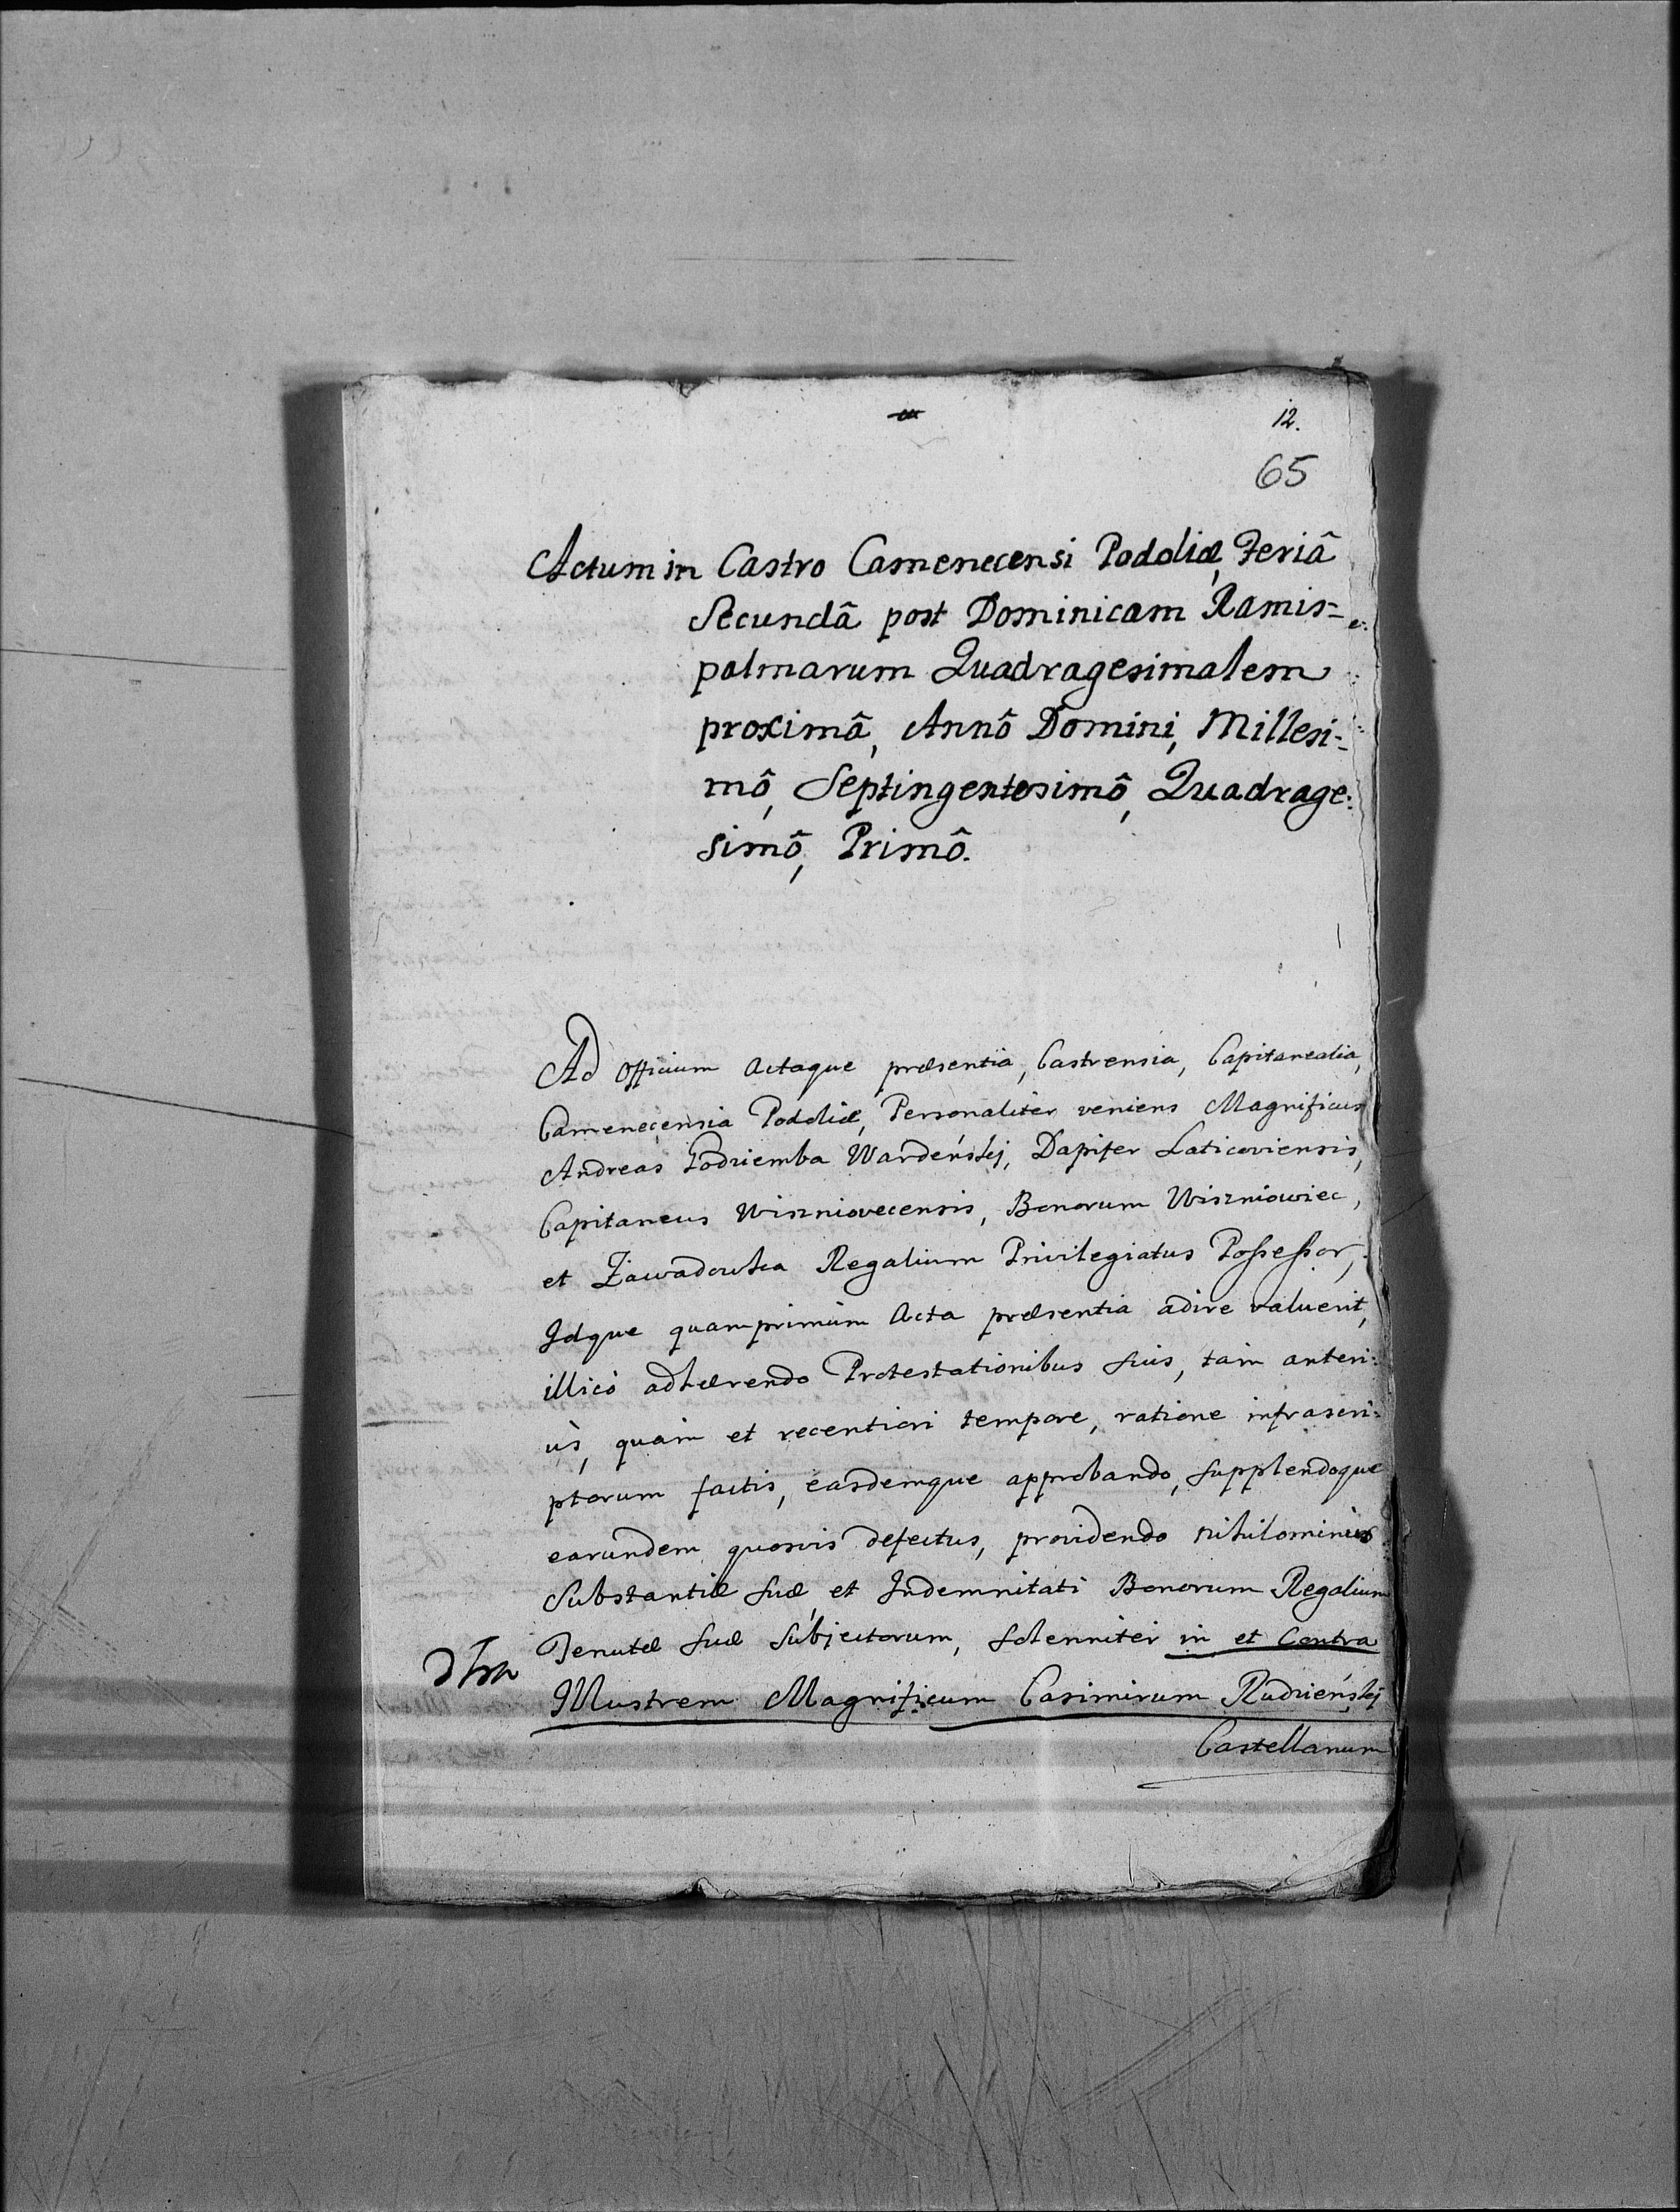 12.
65
Actum in Castro Camenecensi Podoliæ, Feriâ
Secundâ post Dominicam Ramis=
palmarum Quadragesimalem
proximâ, Annô Domini, Millesi=
mô, Septingentesimô, Quadrage=
simô, Primô.
Ad Officium Actaque præsentia, Castrensia, Capitanealia,
Camenecensia Podoliæ, Personaliter veniens Magnificus
Andreas Godziemba Wardęński, Dapifer Laticoviensis,
Capitaneus Wiszniovecensis, Bonorum Wiszniowiec,
et Zawadowka Regalium Privilegiatus Possessor,
Idque quamprimùm Acta præsentia adire valuerit,
illicò adhærendo Protestationibus suis, tàm anteri=
ùs, quàm et recentiori tempore, ratione infrascri=
ptorum factis, easdemque approbando, supplendoque
earundem quosvis defectus, providendo nihilominùs
Substantiæ suæ, et Indemnitati Bonorum Regalium
Tenutæ suæ Subjectorum, solenniter in et Contra
Illustrem Magnificum Casimirum Rudzieński
Castellanum